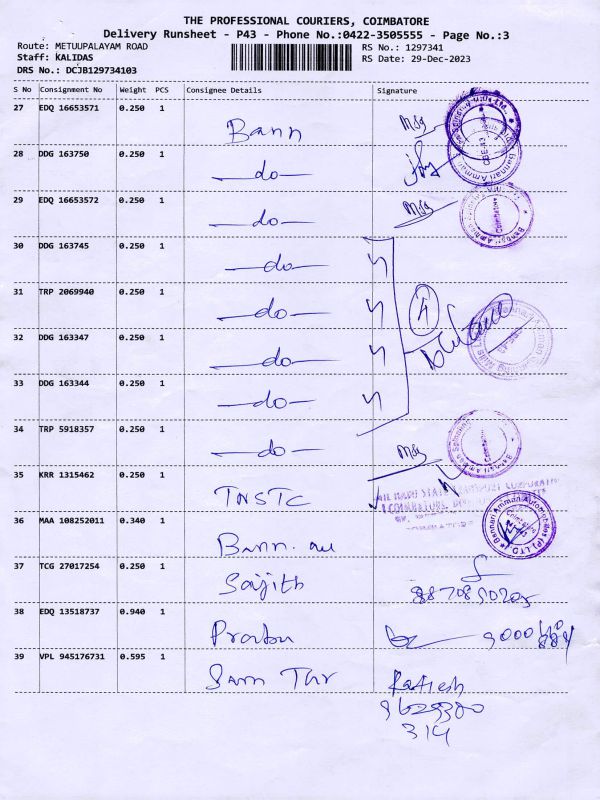 THE PROFESSIONAL COURIERS, COIMBATORE
Delivery Runsheet - P43 - Phone No.:0422-3505555 - Page No.:3
Route: METUUPALAYAM ROAD RS No.: 1297341
Staff: KALIDAS RS Date: 29-Dec-2023
DRS No.: DCJB129734103
S No Consignment No Weight PCS Consignee Details Signature
27 EDQ 16653571 0.250 1
Bann
28 DDG 163750 0.250 1
—do—
29 EDQ 16653572 0.250 1
—do—
30 DDG 163745 0.250 1
—do—
31 TRP 2069940 0.250 1
—do—
4
32 DDG 163347 0.250 1
—do—
33 DDG 163344 0.250 1
—do—
34 TRP 5918357 0.250 1
—do—
35 KRR 1315462 0.250 1
TNSTC
36 MAA 108252011 0.340 1
Bann. au
37 TCG 27017254 0.250 1
Saijith
38 EDQ 13518737 0.940 1
39 VPL 945176731 0.595 1
Sam
9629380
314